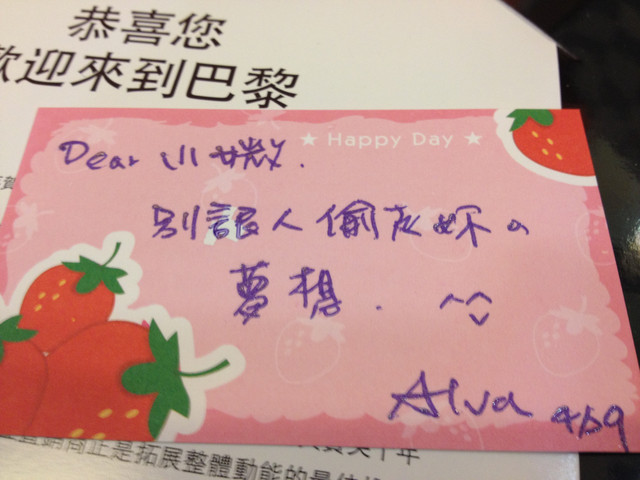 恭喜您
歡迎來到巴黎
★ Happy Day ★
Dear 小媺.
別讓人偷走妳の
夢想. ^^
Alva
正是拓展整體動能的最佳